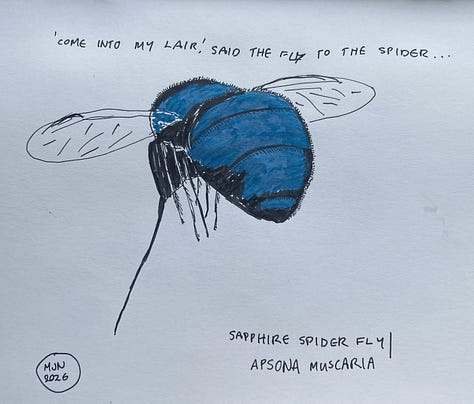 'COME INTO MY LAIR,' SAID THE FLY TO THE SPIDER...
SAPPHIRE SPIDER FLY |
APSONA MUSCARIA
MJN
2026